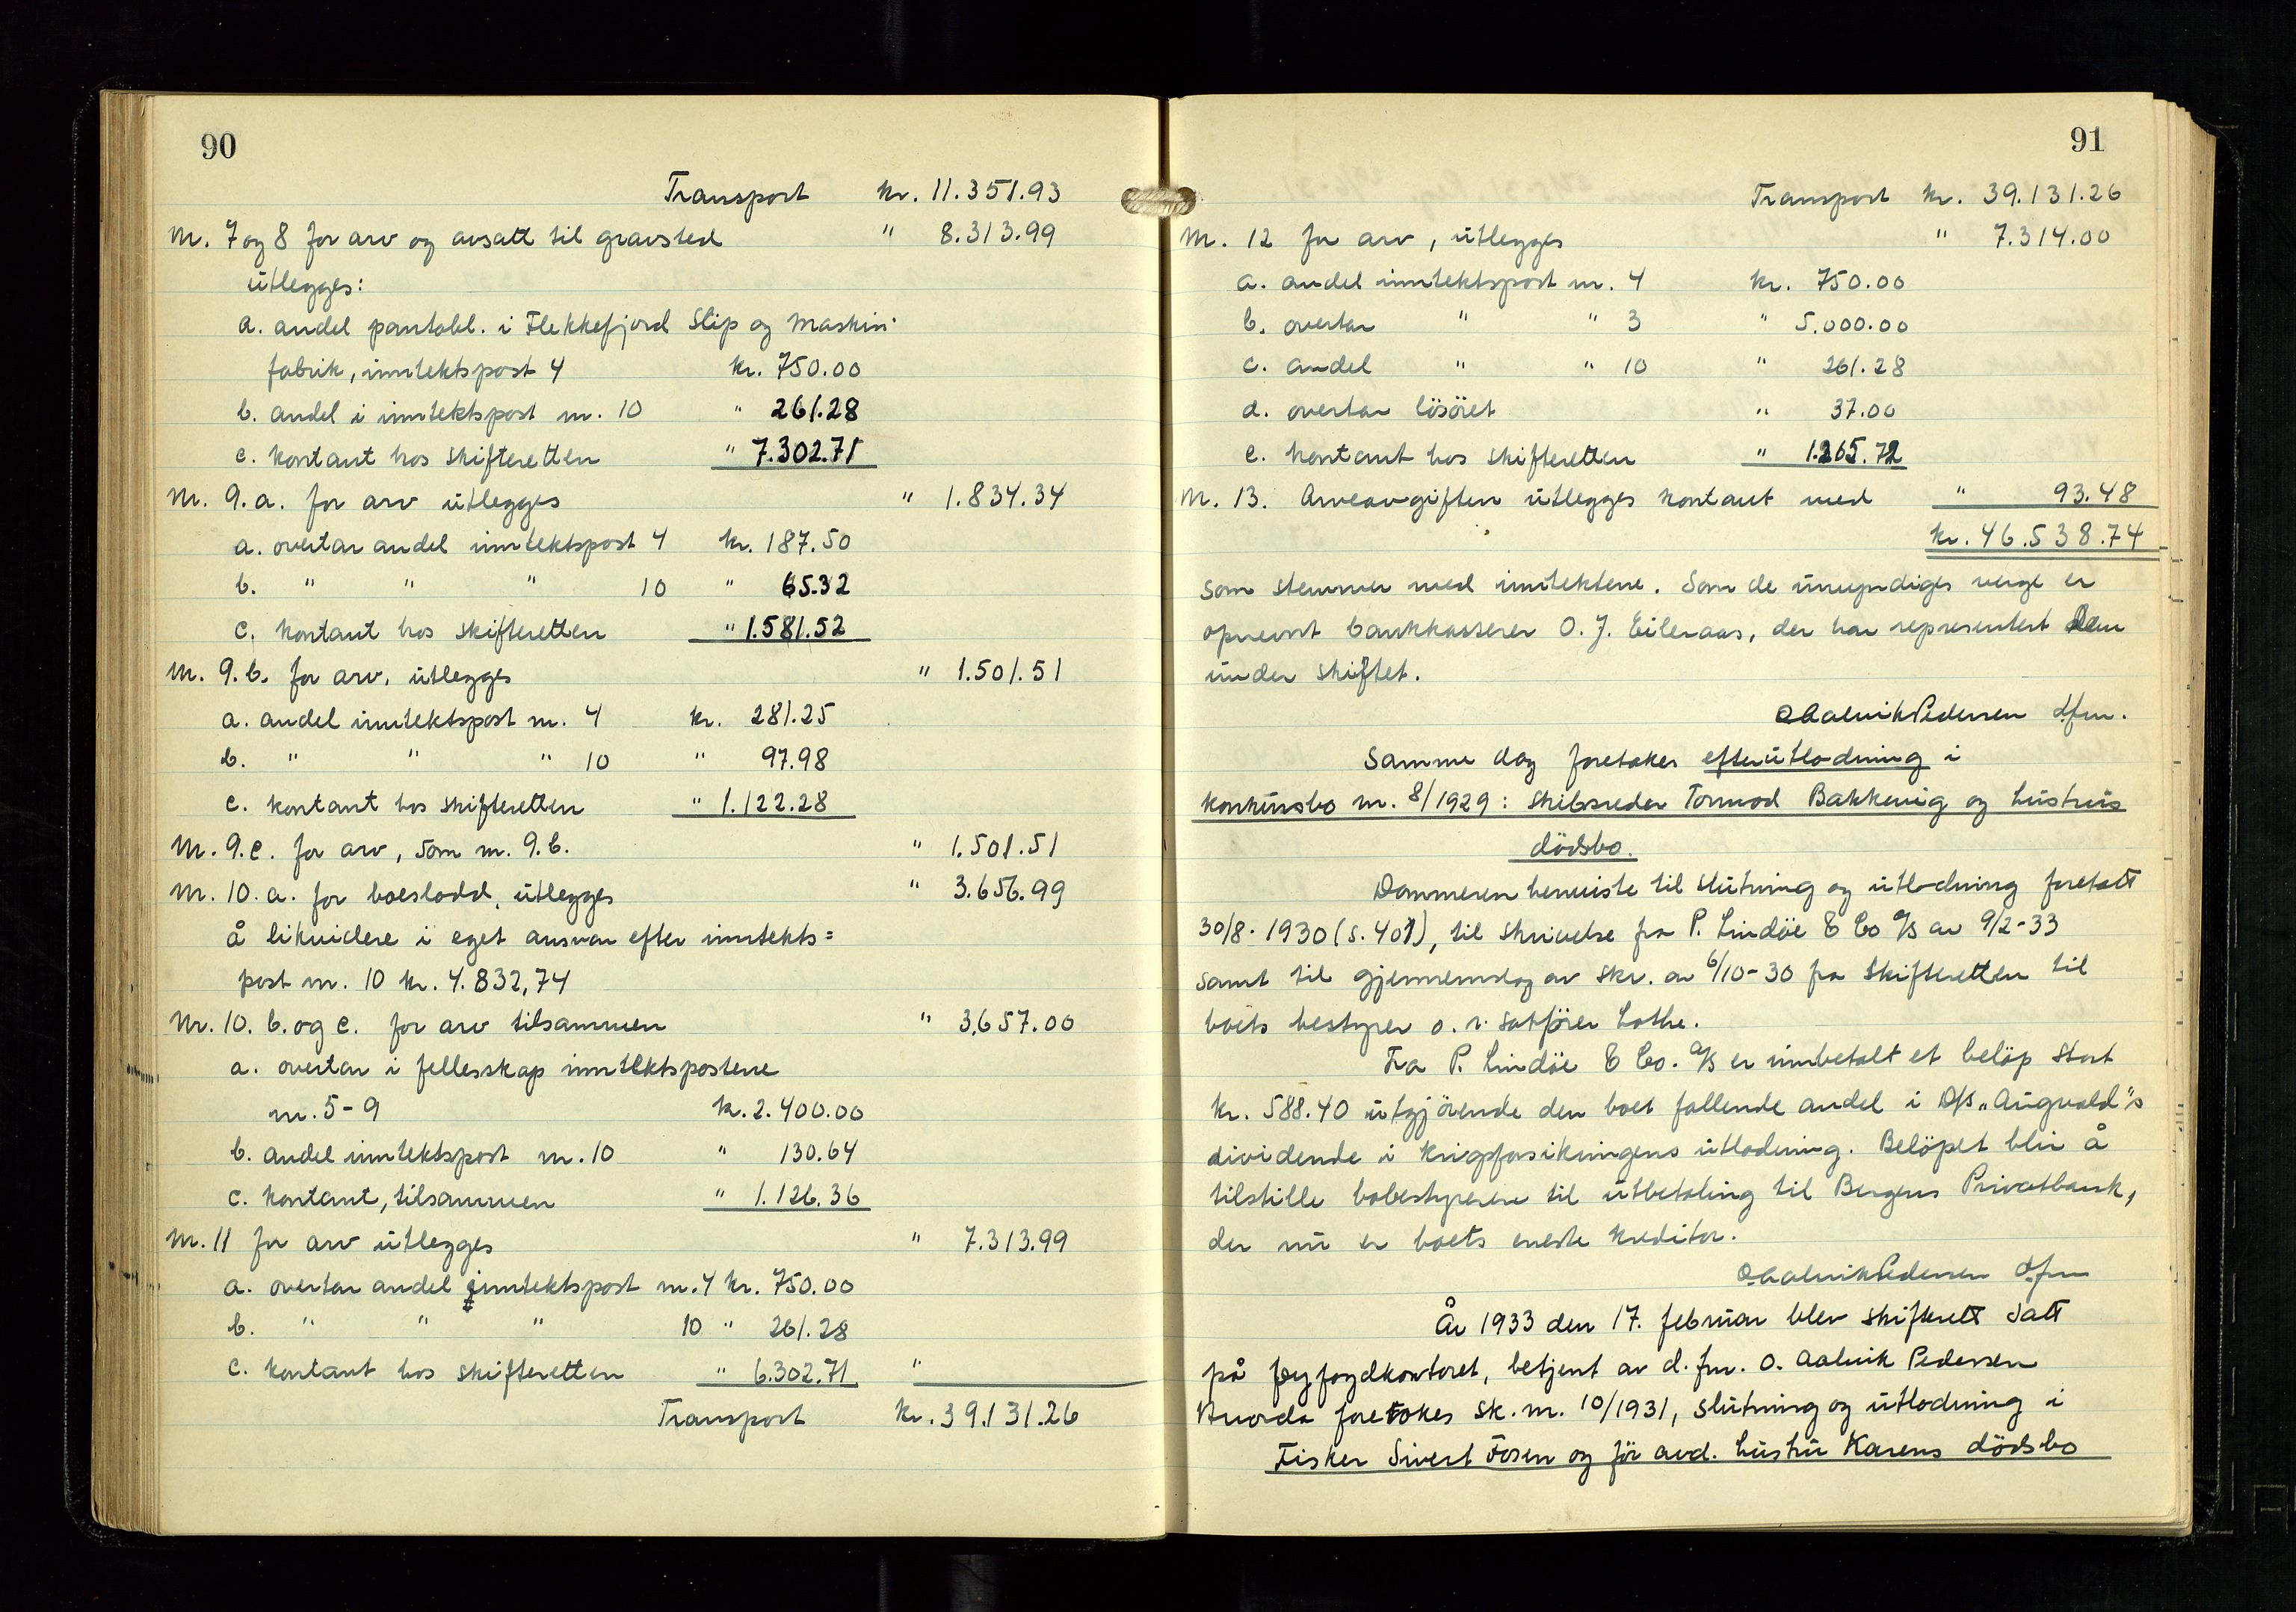 90
Transport kr. 11.351.93
Nr. 7 og 8 for arv og avsatt til gravsted " 8.313.99
utlegges:
a. andel pantobl. i Flekkefjord Slip og Maskin-
fabrik, inntektspost 4 kr. 750.00
b. andel i inntektspost nr. 10 " 261.28
c. kontant hos skifteretten " 7.302.71
Nr. 9.a. for arv utlegges " 1.834.34
a. overtar andel inntektspost 4 kr. 187.50
b. " " " 10 " 65.32
c. kontant hos skifteretten " 1.581.52
Nr. 9.b. for arv, utlegges " 1.501.51
a. andel inntektspost nr. 4 kr. 281.25
b. " " " 10 " 97.98
c. kontant hos skifteretten " 1.122.28
Nr. 9.c. for arv, som nr. 9.b. " 1.501.51
Nr. 10.a. for boeslodd, utlegges " 3.656.99
å likvidere i eget ansvar efter inntekts=
post nr. 10 kr. 4.832,74
Nr. 10. b. og c. for arv tilsammen " 3.657.00
a. overtar i fellesskap inntektspostene
nr. 5-9 kr. 2.400.00
b. andel inntektspost nr. 10 " 130.64
c. kontant, tilsammen " 1.126.36
Nr. 11 for arv utlegges " 7.313.99
a. overtar andel inntektspost nr. 4 kr. 750.00
b. " " " 10 " 261.28
c. kontant hos skifteretten " 6.302.71 "
Transport kr. 39.131.26
91
Transport kr. 39.131.26
Nr. 12 for arv, utlegges " 7.314.00
a. andel inntektspost nr. 4 kr. 750.00
b. overtar " " 3 " 5.000.00
c. andel " " 10 " 261.28
d. overtar lösöret " 37.00
e. kontant hos skifteretten " 1.265.72
Nr. 13. Arveavgiften utlegges kontant med " 93.48
kr. 46.538.74
som stemmer med inntektene. Som de umyndiges verge er
opnevnt bankkasserer O. J. Eileraas, der har representert dem
under skiftet.
O Aalvik Pedersen dfm.
Samme dag foretokes efterutlodning i
konkursbo nr. 8/1929: Skibsreder Tormod Bakkevig og hustrus
dödsbo.
Dommeren henviste til slutning og utlodning foretatt
30/8-1930 (s. 401), til skrivelse fra P. Lindöe & Co A/S av 9/2-33
samt til gjennemslag av skr. av 6/10-30 fra Skifteretten til
boets bestyrer o. r. sakförer Lothe.
Fra P. Lindöe & Co. A/S er innbetalt et belöp stort
kr. 588.40 utgjörende den boet fallende andel i D/S "Augvald"s
dividende i krigsforsikringens utlodning. Belöpet blir å
tilstille bobestyreren til utbetaling til Bergens Privatbank,
der nu er boets eneste kreditor.
O Aalvik Pedersen dfm
År 1933 den 17. februar blev skifterett satt
på fogdkontoret, betjent av d. fm. O. Aalvik Pedersen
Hvorda foretokes sk. nr. 10/1931, slutning og utlodning i
Fisker Sivert Fosen og för avd. hustru Karens dödsbo